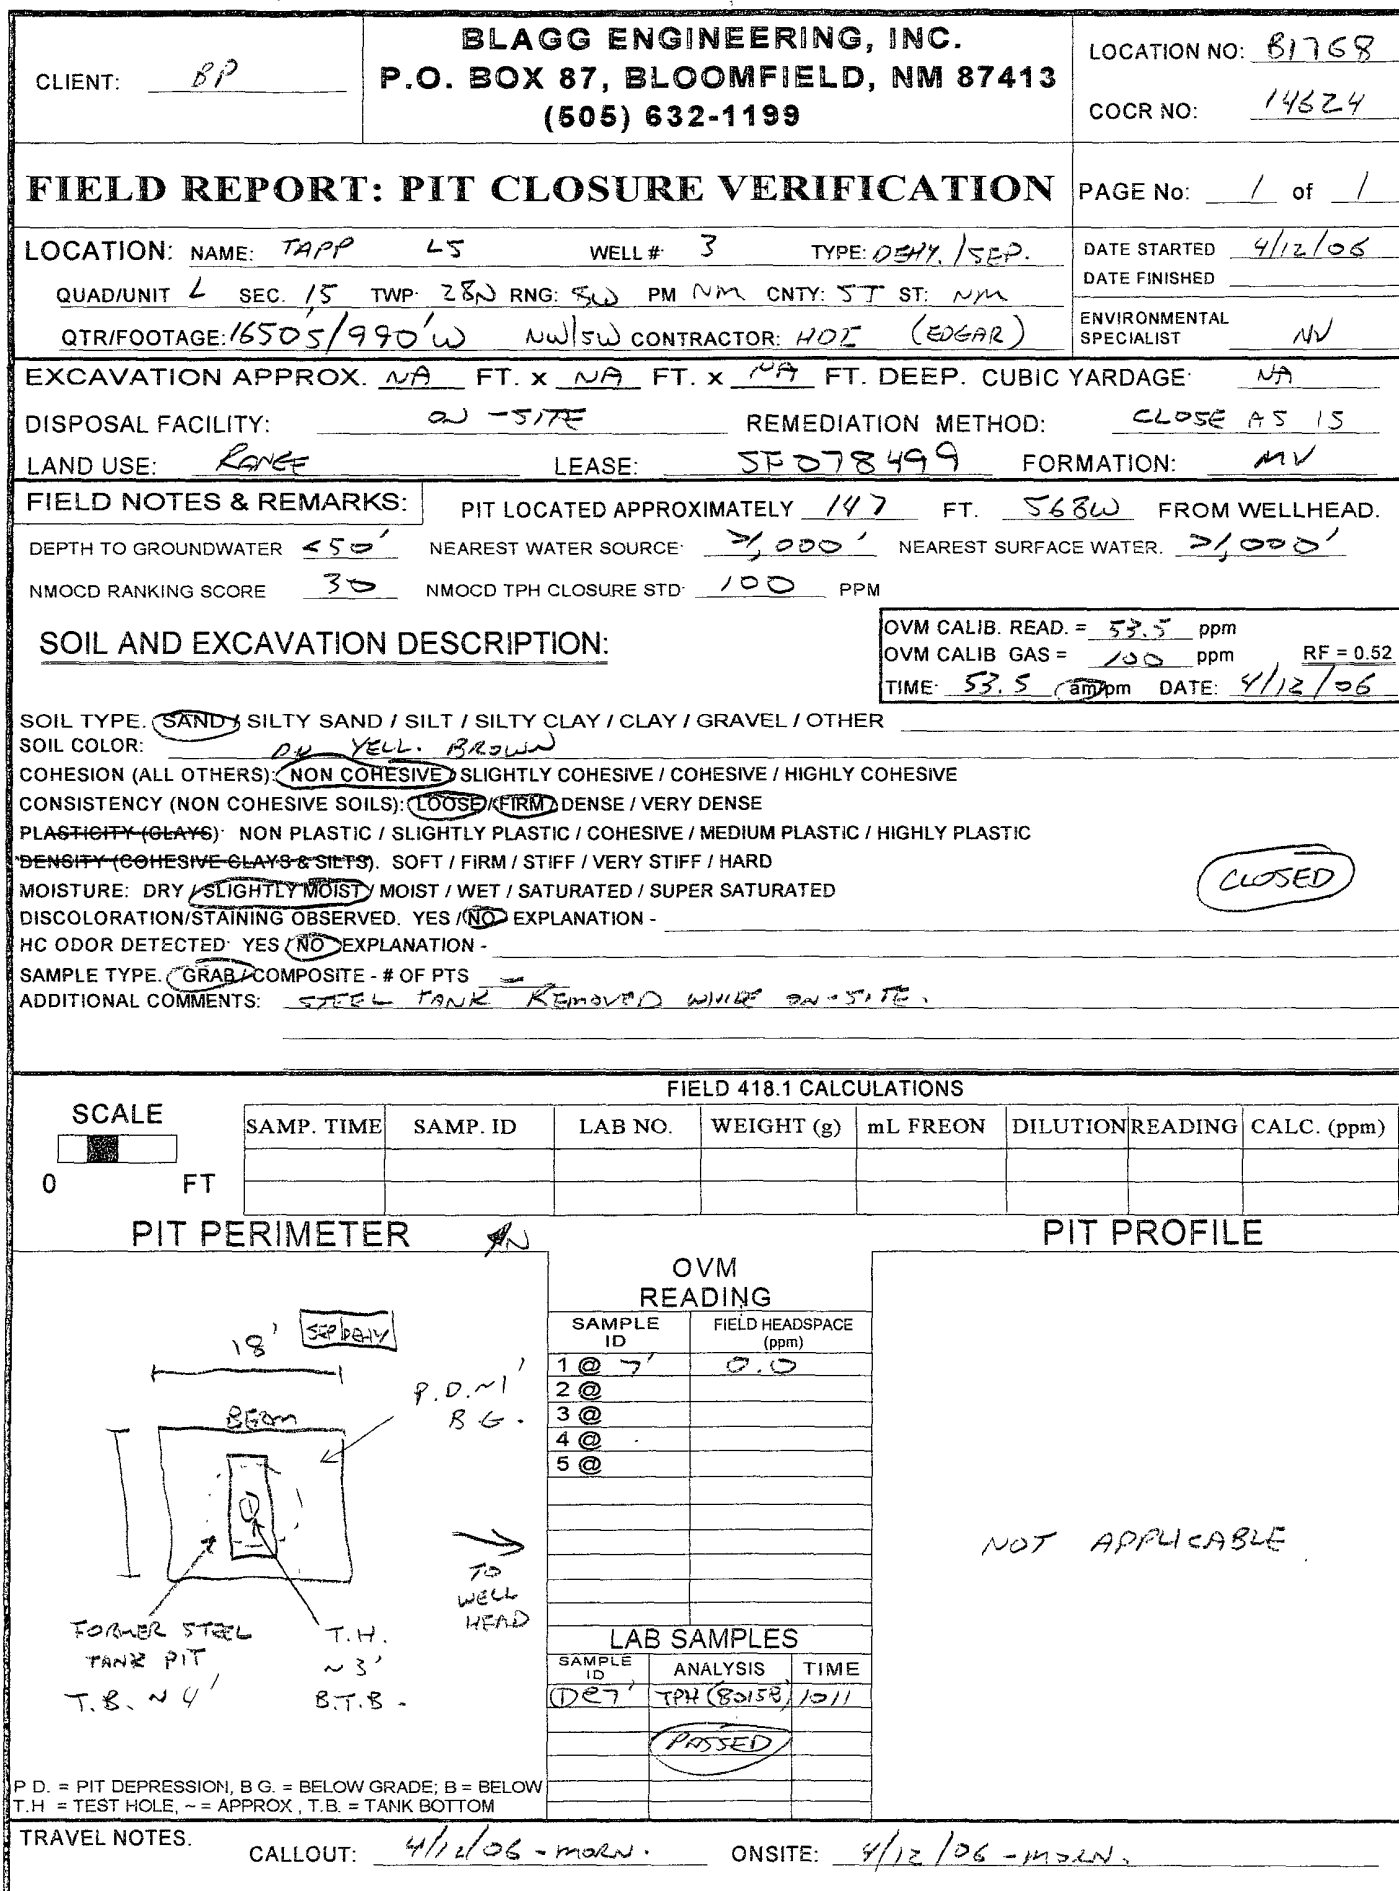 BLAGG ENGINEERING, INC.
P.O. BOX 87, BLOOMFIELD, NM 87413
(505) 632-1199
CLIENT: BP
LOCATION NO: B1768
COCR NO: 14624
FIELD REPORT: PIT CLOSURE VERIFICATION
PAGE No: 1 of 1
LOCATION: NAME: TAPP LS WELL #: 3 TYPE: DEHY./SEP.
QUAD/UNIT L SEC. 15 TWP: 28N RNG: 8W PM NM CNTY: ST ST: NM
QTR/FOOTAGE: 1650'S/990'W NW/SW CONTRACTOR: HOI (EDGAR)
DATE STARTED 4/12/06
DATE FINISHED
ENVIRONMENTAL SPECIALIST NV
EXCAVATION APPROX. NA FT. x NA FT. x NA FT. DEEP. CUBIC YARDAGE: NA
DISPOSAL FACILITY: ON-SITE REMEDIATION METHOD: CLOSE AS IS
LAND USE: RANGE LEASE: SF078499 FORMATION: MV
FIELD NOTES & REMARKS: PIT LOCATED APPROXIMATELY 147 FT. S68W FROM WELLHEAD.
DEPTH TO GROUNDWATER <50' NEAREST WATER SOURCE: >1,000' NEAREST SURFACE WATER. >1,000'
NMOCD RANKING SCORE 30 NMOCD TPH CLOSURE STD: 100 PPM
SOIL AND EXCAVATION DESCRIPTION:
OVM CALIB. READ. = 53.5 ppm
OVM CALIB GAS = 100 ppm RF = 0.52
TIME: 53.5 am/pm DATE: 4/12/06
SOIL TYPE. SAND / SILTY SAND / SILT / SILTY CLAY / CLAY / GRAVEL / OTHER
SOIL COLOR: DK YELL. BROWN
COHESION (ALL OTHERS): NON COHESIVE / SLIGHTLY COHESIVE / COHESIVE / HIGHLY COHESIVE
CONSISTENCY (NON COHESIVE SOILS): LOOSE / FIRM / DENSE / VERY DENSE
PLASTICITY (CLAYS): NON PLASTIC / SLIGHTLY PLASTIC / COHESIVE / MEDIUM PLASTIC / HIGHLY PLASTIC
DENSITY (COHESIVE CLAYS & SILTS). SOFT / FIRM / STIFF / VERY STIFF / HARD
MOISTURE: DRY / SLIGHTLY MOIST / MOIST / WET / SATURATED / SUPER SATURATED
CLOSED
DISCOLORATION/STAINING OBSERVED. YES / NO EXPLANATION -
HC ODOR DETECTED: YES / NO EXPLANATION -
SAMPLE TYPE. GRAB / COMPOSITE - # OF PTS -
ADDITIONAL COMMENTS: STEEL TANK REMOVED WHILE ON-SITE.
FIELD 418.1 CALCULATIONS
SCALE
0 FT
SAMP. TIME SAMP. ID LAB NO. WEIGHT (g) mL FREON DILUTION READING CALC. (ppm)
PIT PERIMETER N
18'
SEP DEHY
P.D. ~1'
B.G.
BERM
1
TO
WELL
HEAD
FORMER STEEL
TANK PIT
T.B. ~4'
T.H.
~3'
B.T.B.
OVM
READING
SAMPLE ID FIELD HEADSPACE (ppm)
1 @ 7' 0.0
2 @
3 @
4 @
5 @
LAB SAMPLES
SAMPLE ID ANALYSIS TIME
1@7' TPH (8015B) 1011
PASSED
PIT PROFILE
NOT APPLICABLE
P D. = PIT DEPRESSION, B G. = BELOW GRADE; B = BELOW
T.H = TEST HOLE, ~ = APPROX , T.B. = TANK BOTTOM
TRAVEL NOTES. CALLOUT: 4/12/06 - MORN. ONSITE: 4/12/06 - MORN.